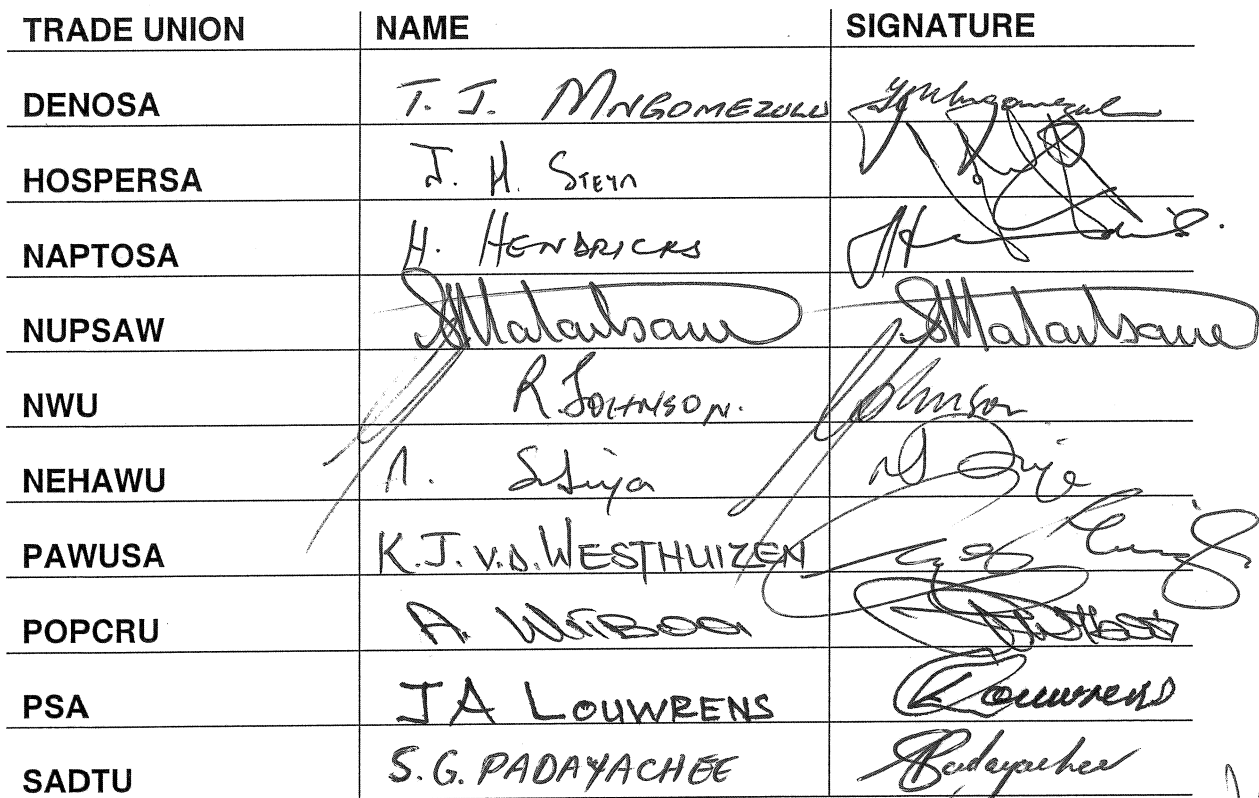 TRADE UNION NAME SIGNATURE
DENOSA T. J. MNGOMEZULU
HOSPERSA J. H. STEYN
NAPTOSA H. HENDRICKS
NUPSAW
NWU R. JOHNSON. Johnson
NEHAWU
PAWUSA K. J. V.D. WESTHUIZEN
POPCRU A.
PSA J A LOUWRENS Louwrens
SADTU S. G. PADAYACHEE Padayachee